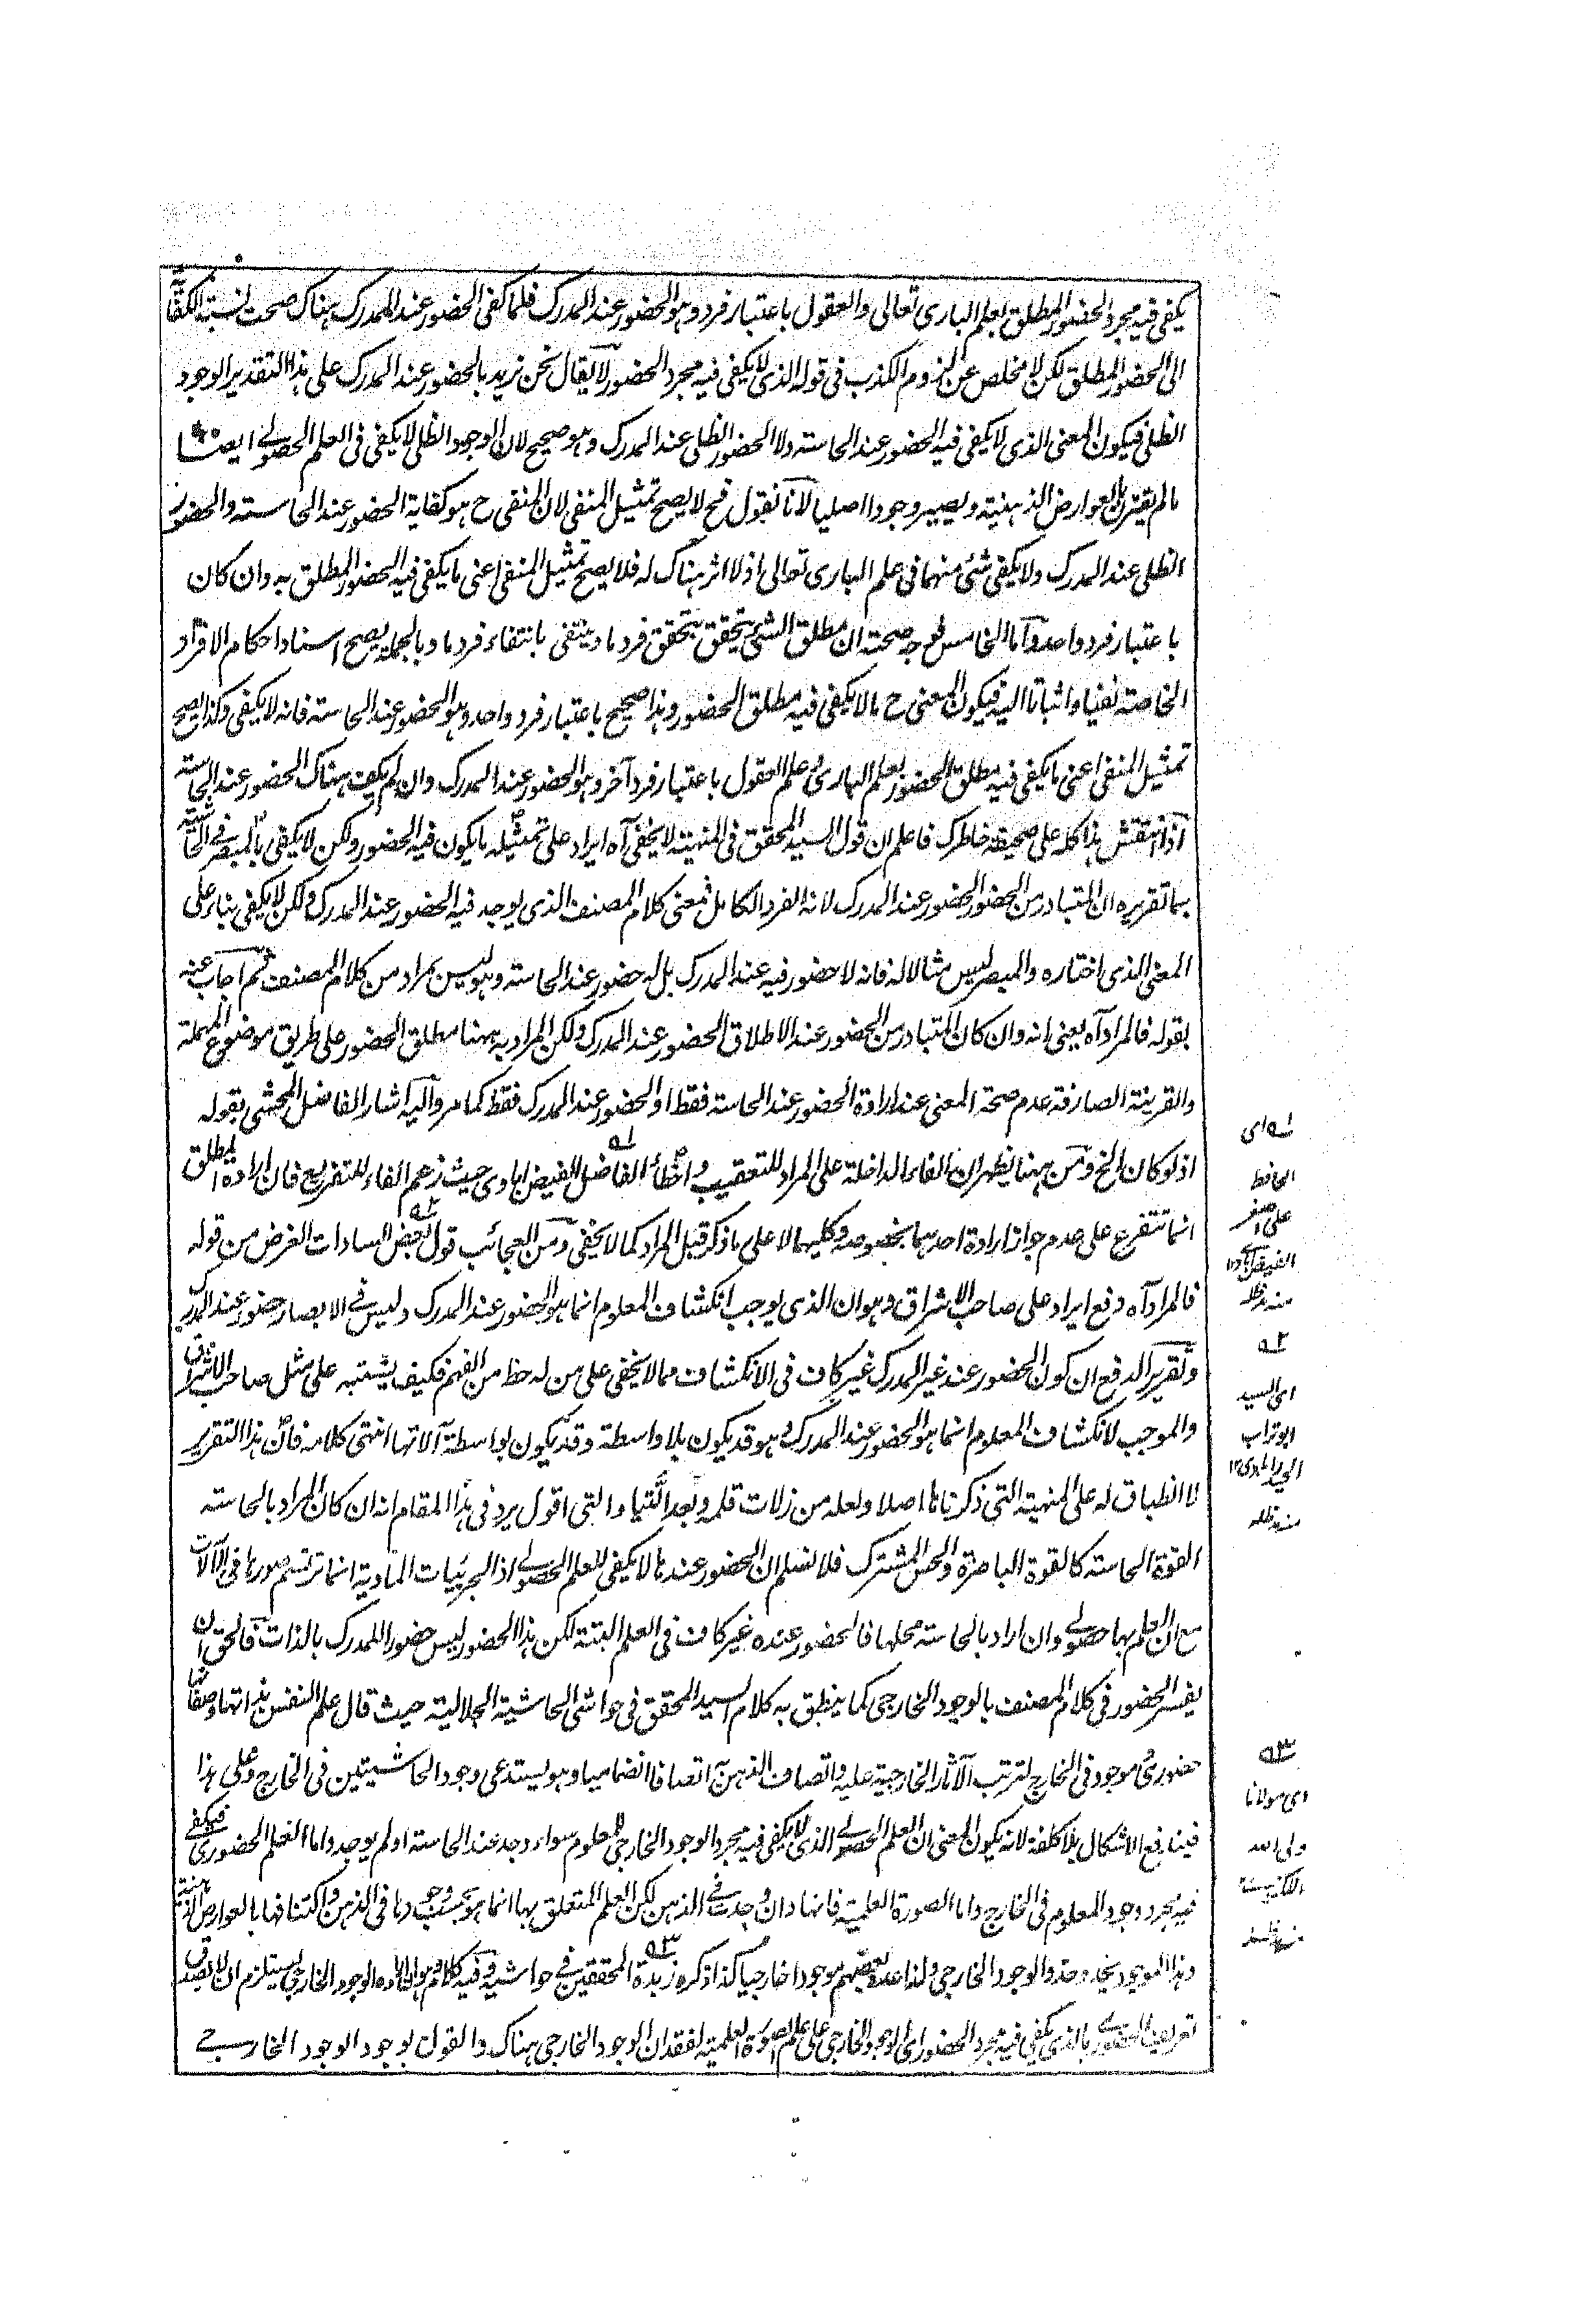 يكفى فيه مجرد الحضور المطلق بعلم البارى تعالى والعقول باعتبار فرد وهو الحضور عند المدرك فلما كفى الحضور عند المدرك هناك صحت نسبة الكفاية
الى الحضور المطلق لكن لا مخلص عن لزوم الكذب فى قوله الذى لا يكفى فيه مجرد الحضور لا يقال نحن نريد بالحضور عند المدرك على هذا التقدير الوجود
الظلى فيكون المعنى الذى لا يكفى فيه الحضور عند الحاسة ولا الحضور الظلى عند المدرك وهو صحيح لان الوجود الظلى لا يكفى فى العلم الحصولے ايضا
ما لم يقترن بالعوارض الذهنية ويصير وجودا اصليا لانا نقول فح لا يصح تمثيل المنفى لان المنفى ح هو كفاية الحضور عند الحاسة والحضور
الظلى عند المدرك ولا يكفى شئ منهما فى علم البارى تعالى اذ لا اثر هناك له فلا يصح تمثيل المنفى اعنى ما يكفى فيه الحضور المطلق به وان كان
باعتبار فرد واحد وآما الخامس فوجه صحته ان مطلق الشئ يتحقق بتحقق فرد ما وينتفى بانتفاء فرد ما وبالجملة يصح اسناد احكام الافراد
الخاصة نفيا واثباتا اليه فيكون المعنى ح ما لا يكفى فيه مطلق الحضور وهذا صحيح باعتبار فرد واحد وهو الحضور عند الحاسة فانه لا يكفى وكذا يصح
تمثيل المنفى اعنى ما يكفى فيه مطلق الحضور بعلم البارى وعلم العقول باعتبار فرد آخر وهو الحضور عند المدرك وان لم يكف هناك الحضور عند الحاسة
اذا انتقش هذا كله على صحيفة خاطرك فاعلم ان قول السيد المحقق فى المنهية لا يخفى آه ايراد على تمثيله ما يكون فيه الحضور ولكن لا يكفى بالمبصر فے الحاشية
بما تقريره ان المتبادر من الحضور الحضور عند المدرك لانه الفرد الكامل فمعنى كلام المصنف الذى يوجد فيه الحضور عند المدرك ولكن لا يكفى بناء على
المعنى الذى اختاره والمبصر ليس مثالا له فانه لا حضور فيه عند المدرك بل له حضور عند الحاسة وهو ليس بمراد من كلام المصنف ثم اجاب عنه
بقوله فالمراد آه يعنى انه وان كان المتبادر من الحضور عند الاطلاق الحضور عند المدرك ولكن المراد به ههنا مطلق الحضور على طريق موضوع المهملة
والقرينة الصارفة عدم صحة المعنى عند ارادة الحضور عند الحاسة فقط او الحضور عند المدرك فقط كما مر واليه اشار الفاضل المحشى بقوله
اذ لو كان الخ ومن ههنا يظهر ان الفاء الداخلة على المراد للتعقيب واخطأ الفاضل الفيض ابادى حيث زعم الفاء للتفريع فان ارادة المطلق
انما تتفرع على عدم جواز ارادة احدهما بخصوصه وكليهما لا على ما ذكر قبل المراد كما لا يخفى ومن العجائب قول بعض السادات الغرض من قوله
فالمراد آه دفع ايراد على صاحب الاشراق وهو ان الذى يوجب انكشاف المعلوم انما هو الحضور عند المدرك وليس فے الابصار حضور عند المدرك
وتقرير الدفع ان كون الحضور عند غير المدرك غير كاف فى الانكشاف مما لا يخفى على من له حظ من الفهم فكيف يشتبه على مثل صاحب الاشراق
والموجب لانكشاف المعلوم انما هو الحضور عند المدرك وهو قد يكون بلا واسطة وقد يكون بواسطة آلاتها انتهى كلامه فان هذا التقرير
لا انطباق له على المنهية التى ذكرناها اصلا ولعله من زلات قلمه وبعد اللتيا والتى اقول يرد فى هذا المقام انه ان كان المراد بالحاسة
القوة الحاسة كالقوة الباصرة والحس المشترك فلا نسلم ان الحضور عندها لا يكفى للعلم الحصولے اذ الجزئيات المادية انما ترتسم صورها فى الآلات
مع ان العلم بها حصولے وان اراد بالحاسة محلها فالحضور عنده غير كاف فى العلم البتة لكن هذا الحضور ليس حضورا للمدرك بالذات فالحق ان
يفسر الحضور فى كلام المصنف بالوجود الخارجى كما ينطق به كلام السيد المحقق فى حواشى الحاشية الجلالية حيث قال علم النفس بذاتها وصفاتها
حضورى موجود فى الخارج لترتب الآثار الخارجية عليه واتصاف الذهن به اتصافا انضماميا وهو يستدعى وجود الحاشيتين فى الخارج وعلى هذا
فيندفع الاشكال بلا كلفة لانه يكون المعنى ان العلم الحصولے الذى لا يكفى فيه مجرد الوجود الخارجى للمعلوم سواء وجد عند الحاسة او لم يوجد واما العلم الحضورى فيكفے
فيه مجرد وجود المعلوم فى الخارج واما الصورة العلمية فانها وان وجدت فے الذهن لكن العلم المتعلق بها انما هو بحسب وجودها فى الذهن واكتنافها بالعوارض الذهنية
وهذا الوجود يحذو حذو الوجود الخارجى ولذا عده بعضهم موجودا خارجيا كذا ذكره زبدة المحققين فے حواشيه وفيه كلام وهو ان ارادة الوجود الخارجى يستلزم ان لا يصدق
تعريف الحضورے بالذى يكفى فيه مجرد الحضور اى الوجود الخارجى على علم الصورة العلمية لفقدان الوجود الخارجى هناك والقول بوجود الوجود الخارجے
له اى
الحافظ
على اصغر
الفيض آبادى ١٢
منه مدظله
٢ه
اى السيد
ابو تراب
منه مدظله
٣ه
اى مولانا
ولى الله
اللكنوى
منه مدظله